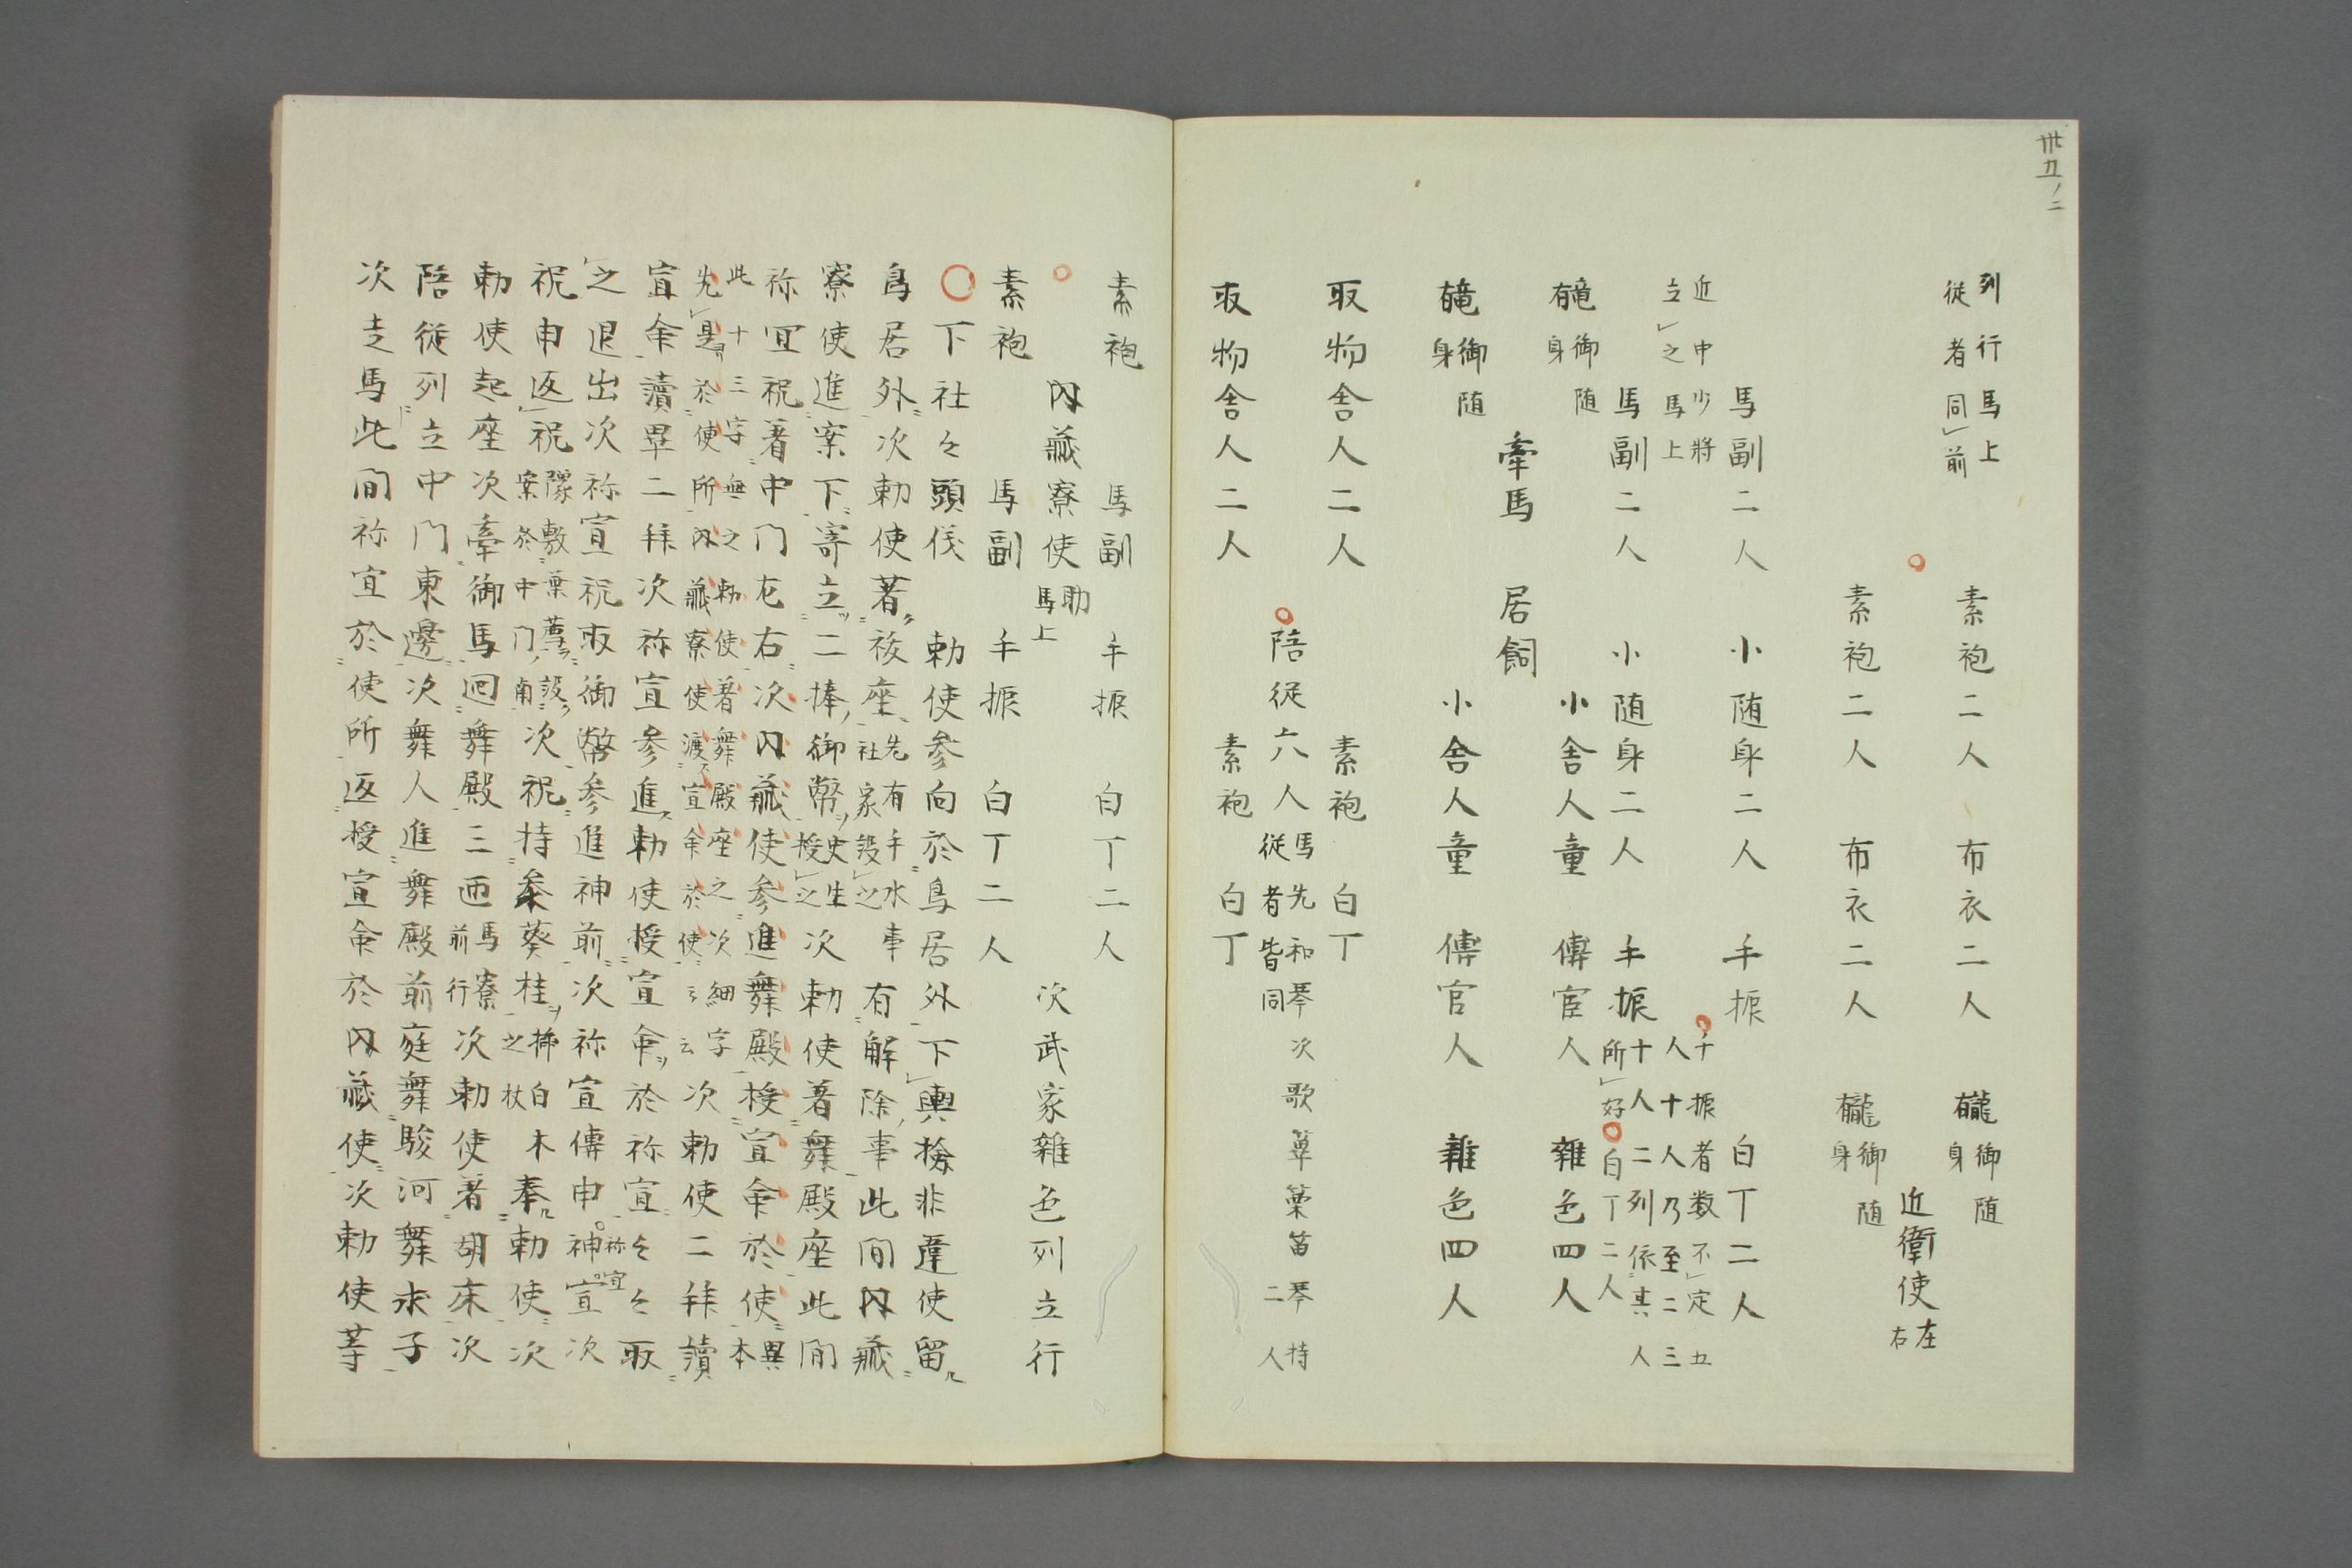 卅五ノ二
列行馬上
従者同前
素袍二人　布衣二人　龓御随身
近衛使左右
素袍二人　布衣二人　龓御随身
馬副二人　小随身二人　手振　白丁二人
近中少将
立之馬上
手振者数不定五
人十人乃至二三
十人二列依其人
所好
馬副二人　小随身二人　手振　白丁二人
龓御随身　小舎人童　傳官人　雑色四人
牽馬　居飼
龓御随身　小舎人童　傳官人　雑色四人
取物舎人二人　素袍　白丁
陪従六人馬先和琴次歌篳篥笛琴持
従者皆同　二人
取物舎人二人　素袍　白丁
素袍　馬副　手振　白丁二人
内蔵寮使助馬上　次武家雑色列立行
素袍　馬副　手振　白丁二人
下社々頭儀　勅使参向於鳥居外下輿検非違使留
鳥居外次勅使著祓座先有手水事社家設之有解除事此間内蔵
寮使進案下寄立二捧御幣史生授之次勅使著舞殿座此間
祢宜祝著中門左右次内蔵使参進舞殿授宣命於使異本
此十三字無之勅使著舞殿座之次細字
先是於使所内蔵寮使渡宣命於使云云
次勅使二拜讀
宣命讀畢二拜次祢宜参進勅使授宣命於祢宜々々取
之退出次祢宜祝取御幣参進神前次祢宜傳申神宣祢宜次
祝申返祝隊敷葉薦設案於中門南次祝持参葵桂挿白木之杖奉勅使次
勅使起座次牽御馬廻舞殿三匝馬寮前行次勅使著胡床次
陪従列立中門東邊次舞人進舞殿前庭舞駿河舞求子
次走馬此間祢宜於使所返授宣命於内蔵使次勅使等